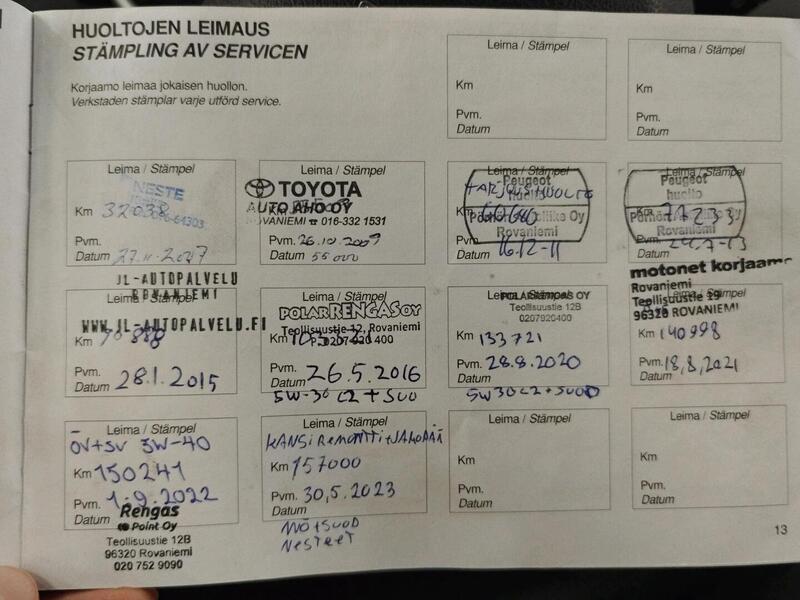 HUOLTOJEN LEIMAUS
STÄMPLING AV SERVICEN
Korjaamo leimaa jokaisen huollon.
Verkstaden stämplar varje utförd service.
Leima / Stämpel
Km
Pvm.
Datum
Leima / Stämpel
Km
Pvm.
Datum
Leima / Stämpel
NESTE
Km 32038
Pvm.
Datum
Leima / Stämpel
TOYOTA
Km
AUTO AHO OY
ROVANIEMI ☎ 016-332 1531
Pvm. 26.10.2009
Datum 55000
Leima / Stämpel
Peugeot
huolto
TARJOUSHUOLTO
Km 60680
Oy
Rovaniemi
Pvm.
Datum 16.12-11
Leima / Stämpel
Peugeot
huolto
Km 77233
Oy
Rovaniemi
Pvm.
Datum 24.7-13
JL-AUTOPALVELU
ROVANIEMI
Leima / Stämpel
WWW.JL-AUTOPALVELU.FI
Km 90888
Pvm.
Datum 28.1.2015
Leima / Stämpel
POLARRENGAS OY
Teollisuustie 12, Rovaniemi
P. 0207 920 400
Km
Pvm. 26.5.2016
Datum
5W-30 C2 + SUO
POLARRENGAS OY
Leima / Stämpel
Teollisuustie 12B
0207920400
Km 133721
Pvm. 28.8.2020
Datum
5W30C2+SUOD
motonet korjaamo
Rovaniemi
Leima / Stämpel
Teollisuustie 19
96320 ROVANIEMI
Km 140998
Pvm. 18,8,2021
Datum
Leima / Stämpel
ÖV+SV 5W-40
Km 150241
Pvm. 1-9.2022
Datum
Rengas
Point Oy
Teollisuustie 12B
96320 Rovaniemi
020 752 9090
Leima / Stämpel
KANSiREMONTTI+JAKOPÄÄ
Km 157000
Pvm. 30,5.2023
Datum
MÖ+SUOD
NESTEET
Leima / Stämpel
Km
Pvm.
Datum
Leima / Stämpel
Km
Pvm.
Datum
13